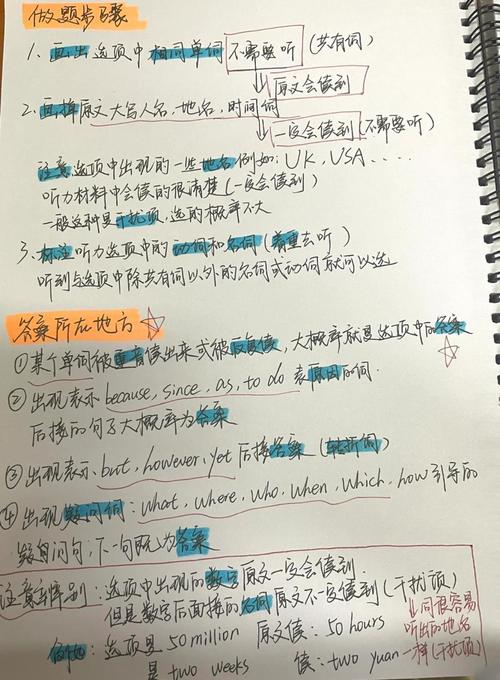 做题步骤
1. 画出选项中相同单词 不需要听 (共有词)
原文会读到
2. 画掉原文大写人名,地名,时间词
一定会读到(不需要听)
注意选项中出现的一些地名例如:UK, USA.....
听力材料中会读的很清楚(一定会读到)
一般这种是干扰项,选的概率不大
3. 标注听力选项中的动词和名词(着重去听)
听到与选项中除共有词以外的名词或动词就可以选
答案所在地方
①某个单词被重音读出来或被反复读,大概率就是选项中的答案
②出现表示because, since, as, to do 表原因的词.
后接的句子大概率为答案
③出现表示but, however, yet 后接答案 (转折词)
④出现疑问词:what, where, who, when, which, how引导的
疑问句,下一句既为答案
注意辨别:选项中出现的数字原文一定会读到
但是数字后面接的名词原文不一定读到(干扰项)
例如:选项是50 million 原文读:50 hours
是 two weeks 读:two yuan
同很容易
听出的地名
一样(干扰项)